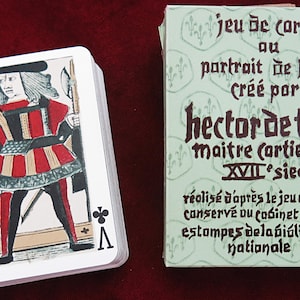 jeu de car
ou
portrait de
créé par
hector de t
maitre cartie
XVII e siec
réalisé d'après le jeu
conservé au cabinet
estampes de la bi
nationale
V